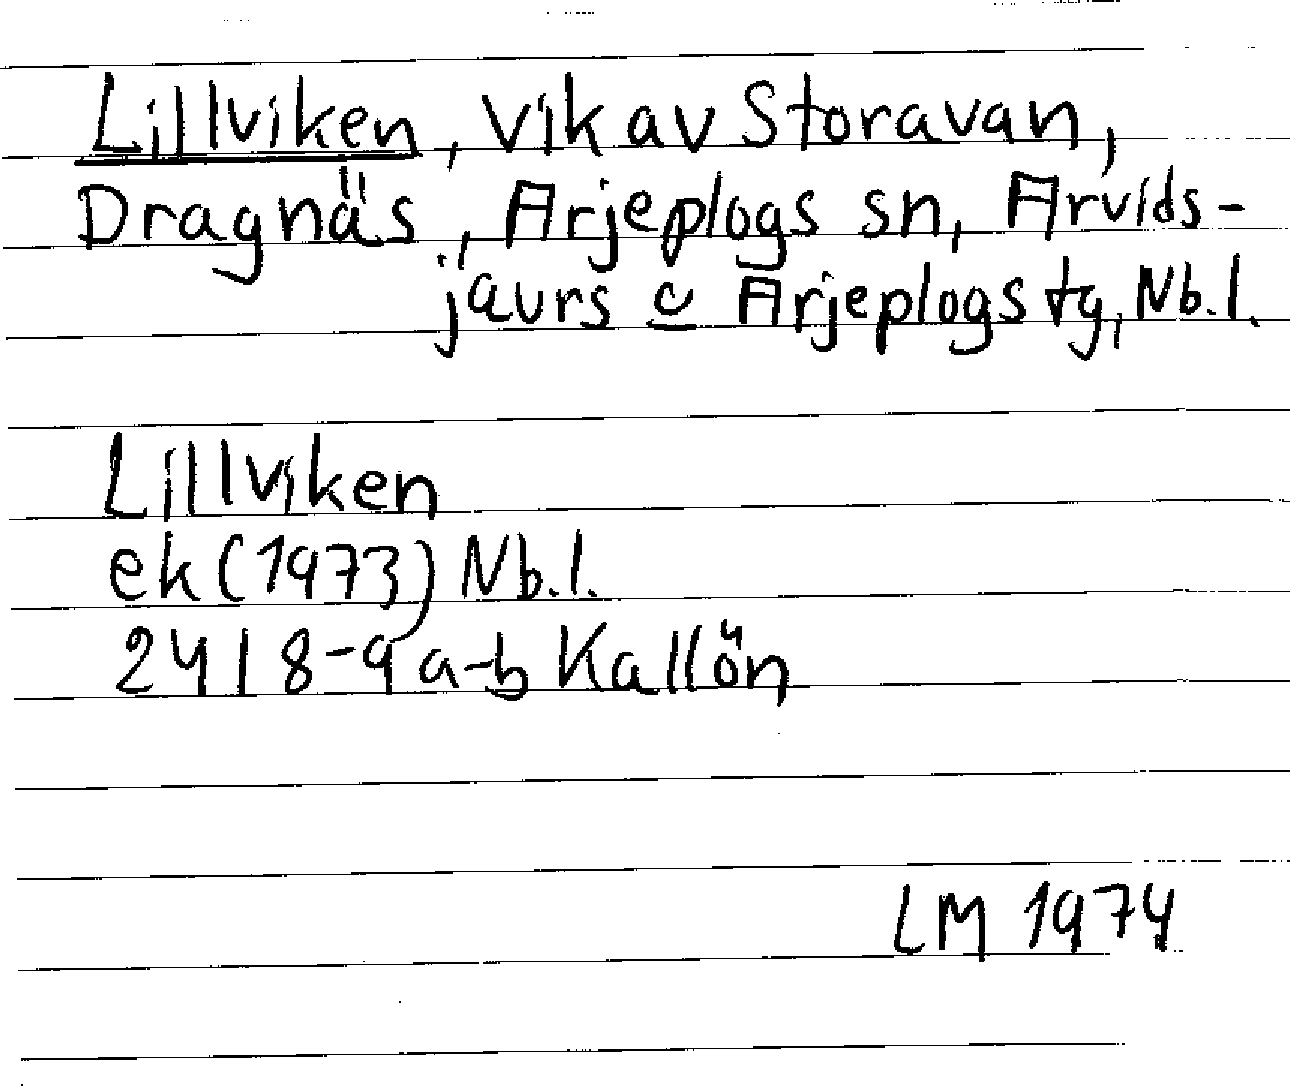 Lillviken, vik av Storavan,
Dragnäs, Arjeplogs sn, Arvids-
jaurs o Arjeplogs tg, Nb.l.
Lillviken
ek (1973) Nb.l.
24I 8-9 a-b Kallön
LM 1974